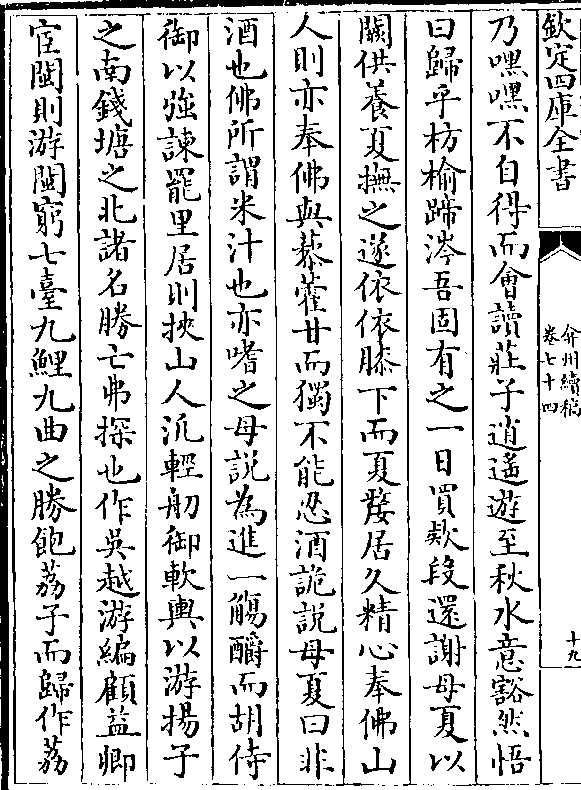 欽定四庫全書
弇州續稿
卷七十四
十九
乃嘿嘿不自得而會讀莊子逍遙遊至秋水意豁然悟
曰歸乎枋榆蹄涔吾固有之一日買欵段還謝母夏以
闕供養夏撫之遂依依膝下而夏嫠居久精心奉佛山
人則亦奉佛與藜藿甘而獨不能忍酒詭説母夏曰非
酒也佛所謂米汁也亦嗜之母説為進一觴釂而胡侍
御以強諫罷里居則挾山人汎輕舠御軟輿以游揚子
之南錢塘之北諸名勝亡弗探也作吳越游編顧益卿
宦閩則游閩窮七臺九鯉九曲之勝飽荔子而歸作荔